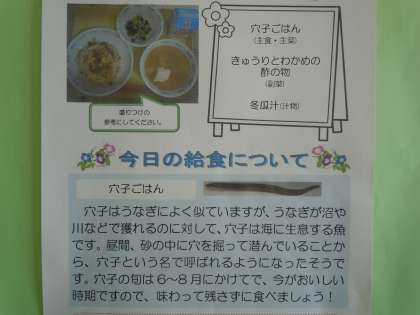 穴子ごはん
(主食・主菜)
きゅうりとわかめの
酢の物
(副菜)
冬瓜汁(汁物)
盛りつけの
参考にしてください。
今日の給食について
穴子ごはん
穴子はうなぎによく似ていますが、うなぎが沼や
川などで獲れるのに対して、穴子は海に生息する魚
です。昼間、砂の中に穴を掘って潜んでいることか
ら、穴子という名で呼ばれるようになったそうで
す。穴子の旬は6~8月にかけてで、今がおいしい
時期ですので、味わって残さずに食べましょう!